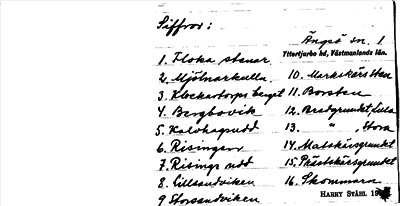 Siffror:
Ängsö sn. 1
Yttertjurbo hd, Västmanlands län.
1. Floka stenar
2. Mjölnarkulla
3. Klockartorps berget
4. Bergbovik
5. Kalvhagsudd
6. Risingsör
7. Risings udd
8. Lillsandviken
9 Storsandviken
10. Marhskärs
11. Borsten
12. Bredgrundet, Lilla
13. " , Stora
14. Matskärsgrundet
15. Prästskärsgrundet
16. Skommarn
HARRY STÅHL